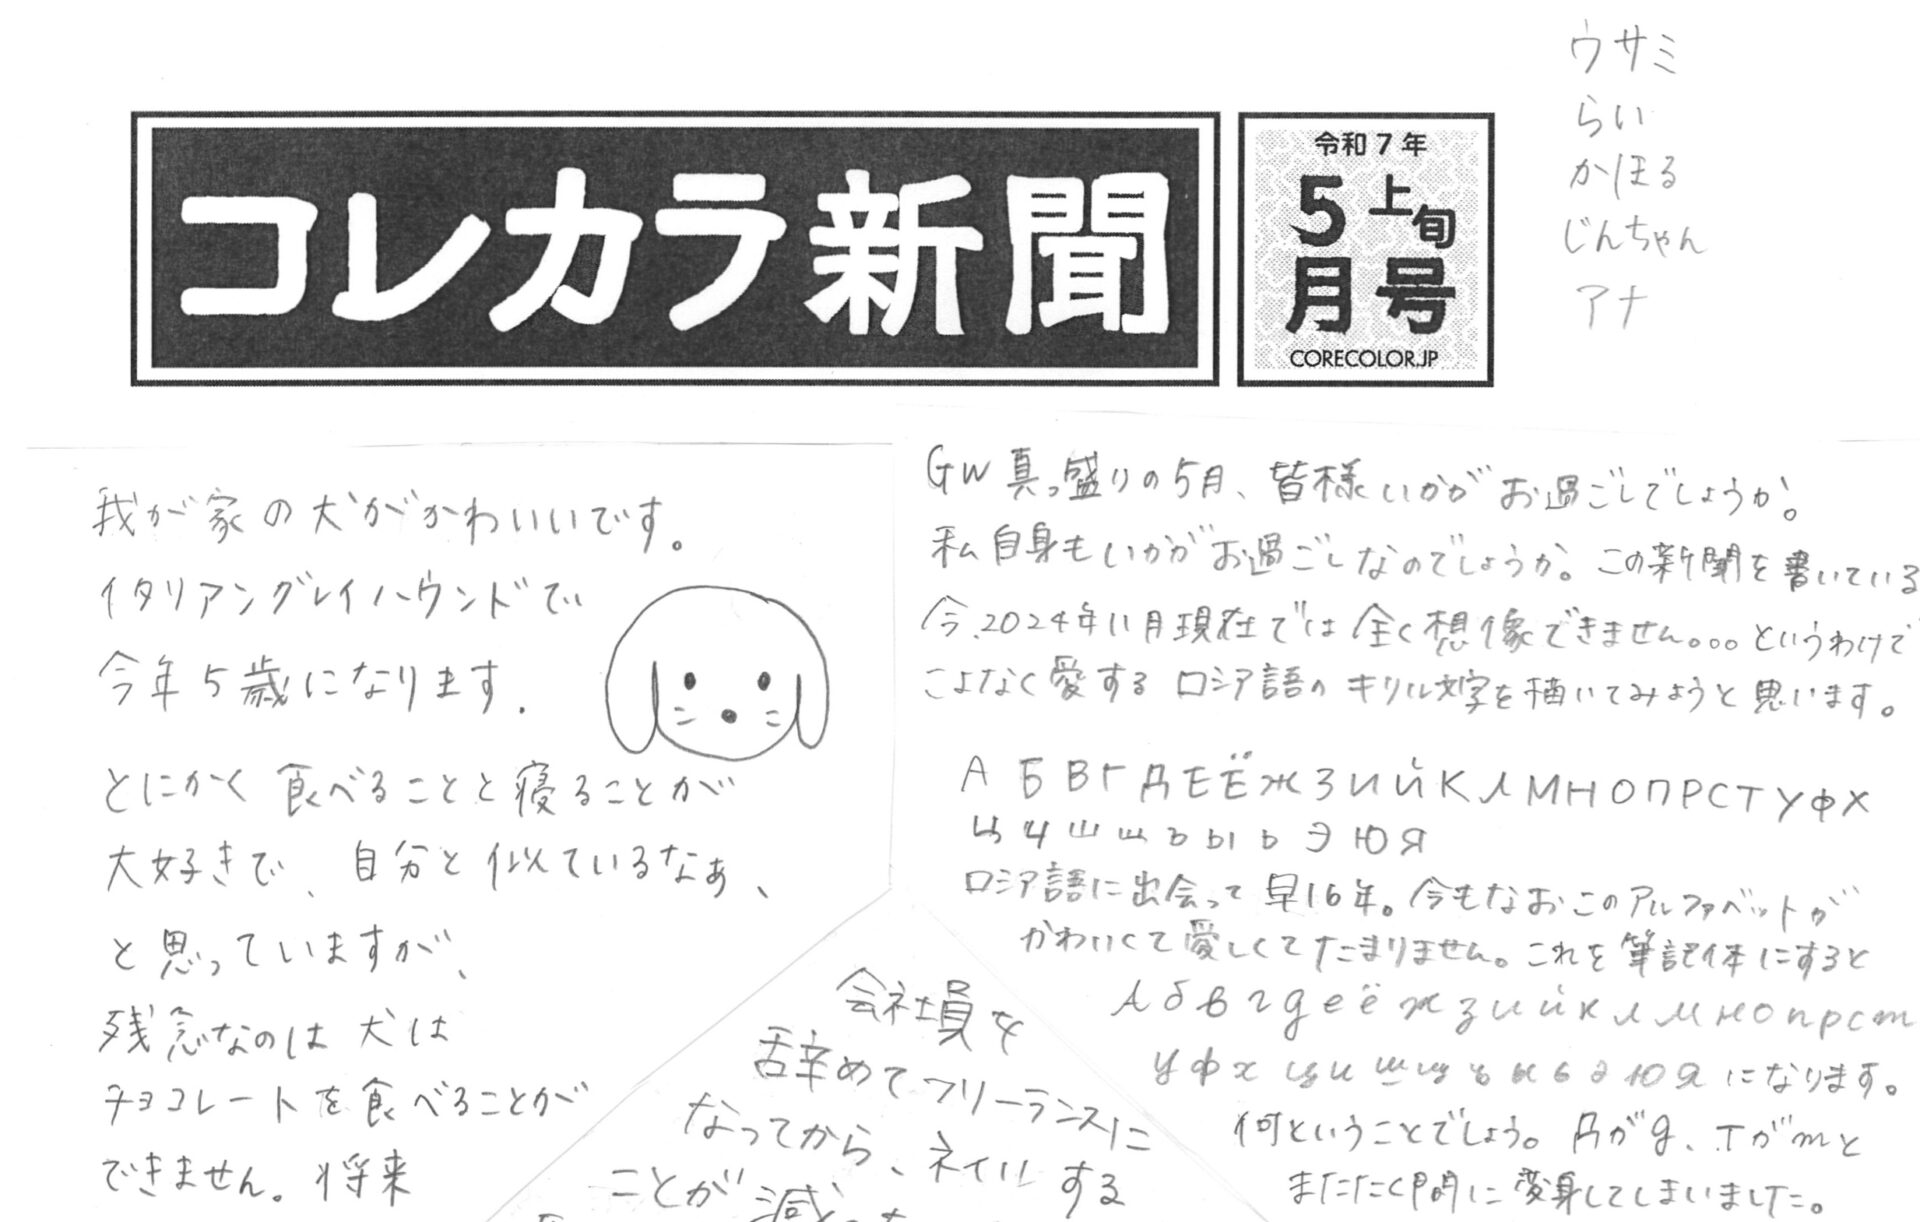 コレカラ新聞
令和7年
5月上旬号
CORECOLOR.JP
ウサミ
らい
かほる
じんちゃん
アナ
我が家の犬がかわいいです。
イタリアングレイハウンドで
今年5歳になります.
とにかく食べることと寝ることが
大好きで、自分と似ているなぁ、
と思っていますが、
残念なのは犬は
チョコレートを食べることが
できません。将来
会社員を
辞めてフリーランスに
なってから、ネイルする
ことが減
GW真っ盛りの5月、皆様いかがお過ごしでしょうか。
私自身もいかがお過ごしなのでしょうか。この新聞を書いている
今、2024年11月現在では全く想像できません。。。というわけで
こよなく愛するロシア語のキリル文字を描いてみようと思います。
А Б В Г Д Е Ё Ж З И Й К Л М Н О П Р С Т У Ф Х
Ц Ч Ш Щ Ъ Ы Ь Э Ю Я
ロシア語に出会って早16年。今もなおこのアルファベットが
かわいくて愛しくてたまりません。これを筆記体にすると
А б в г д е ё ж з и й к л м н о п р с т
у ф х ц ч ш щ ъ ы ь э ю я になります。
何ということでしょう。Дがg、Tがmと
またたく間に変身してしまいました。